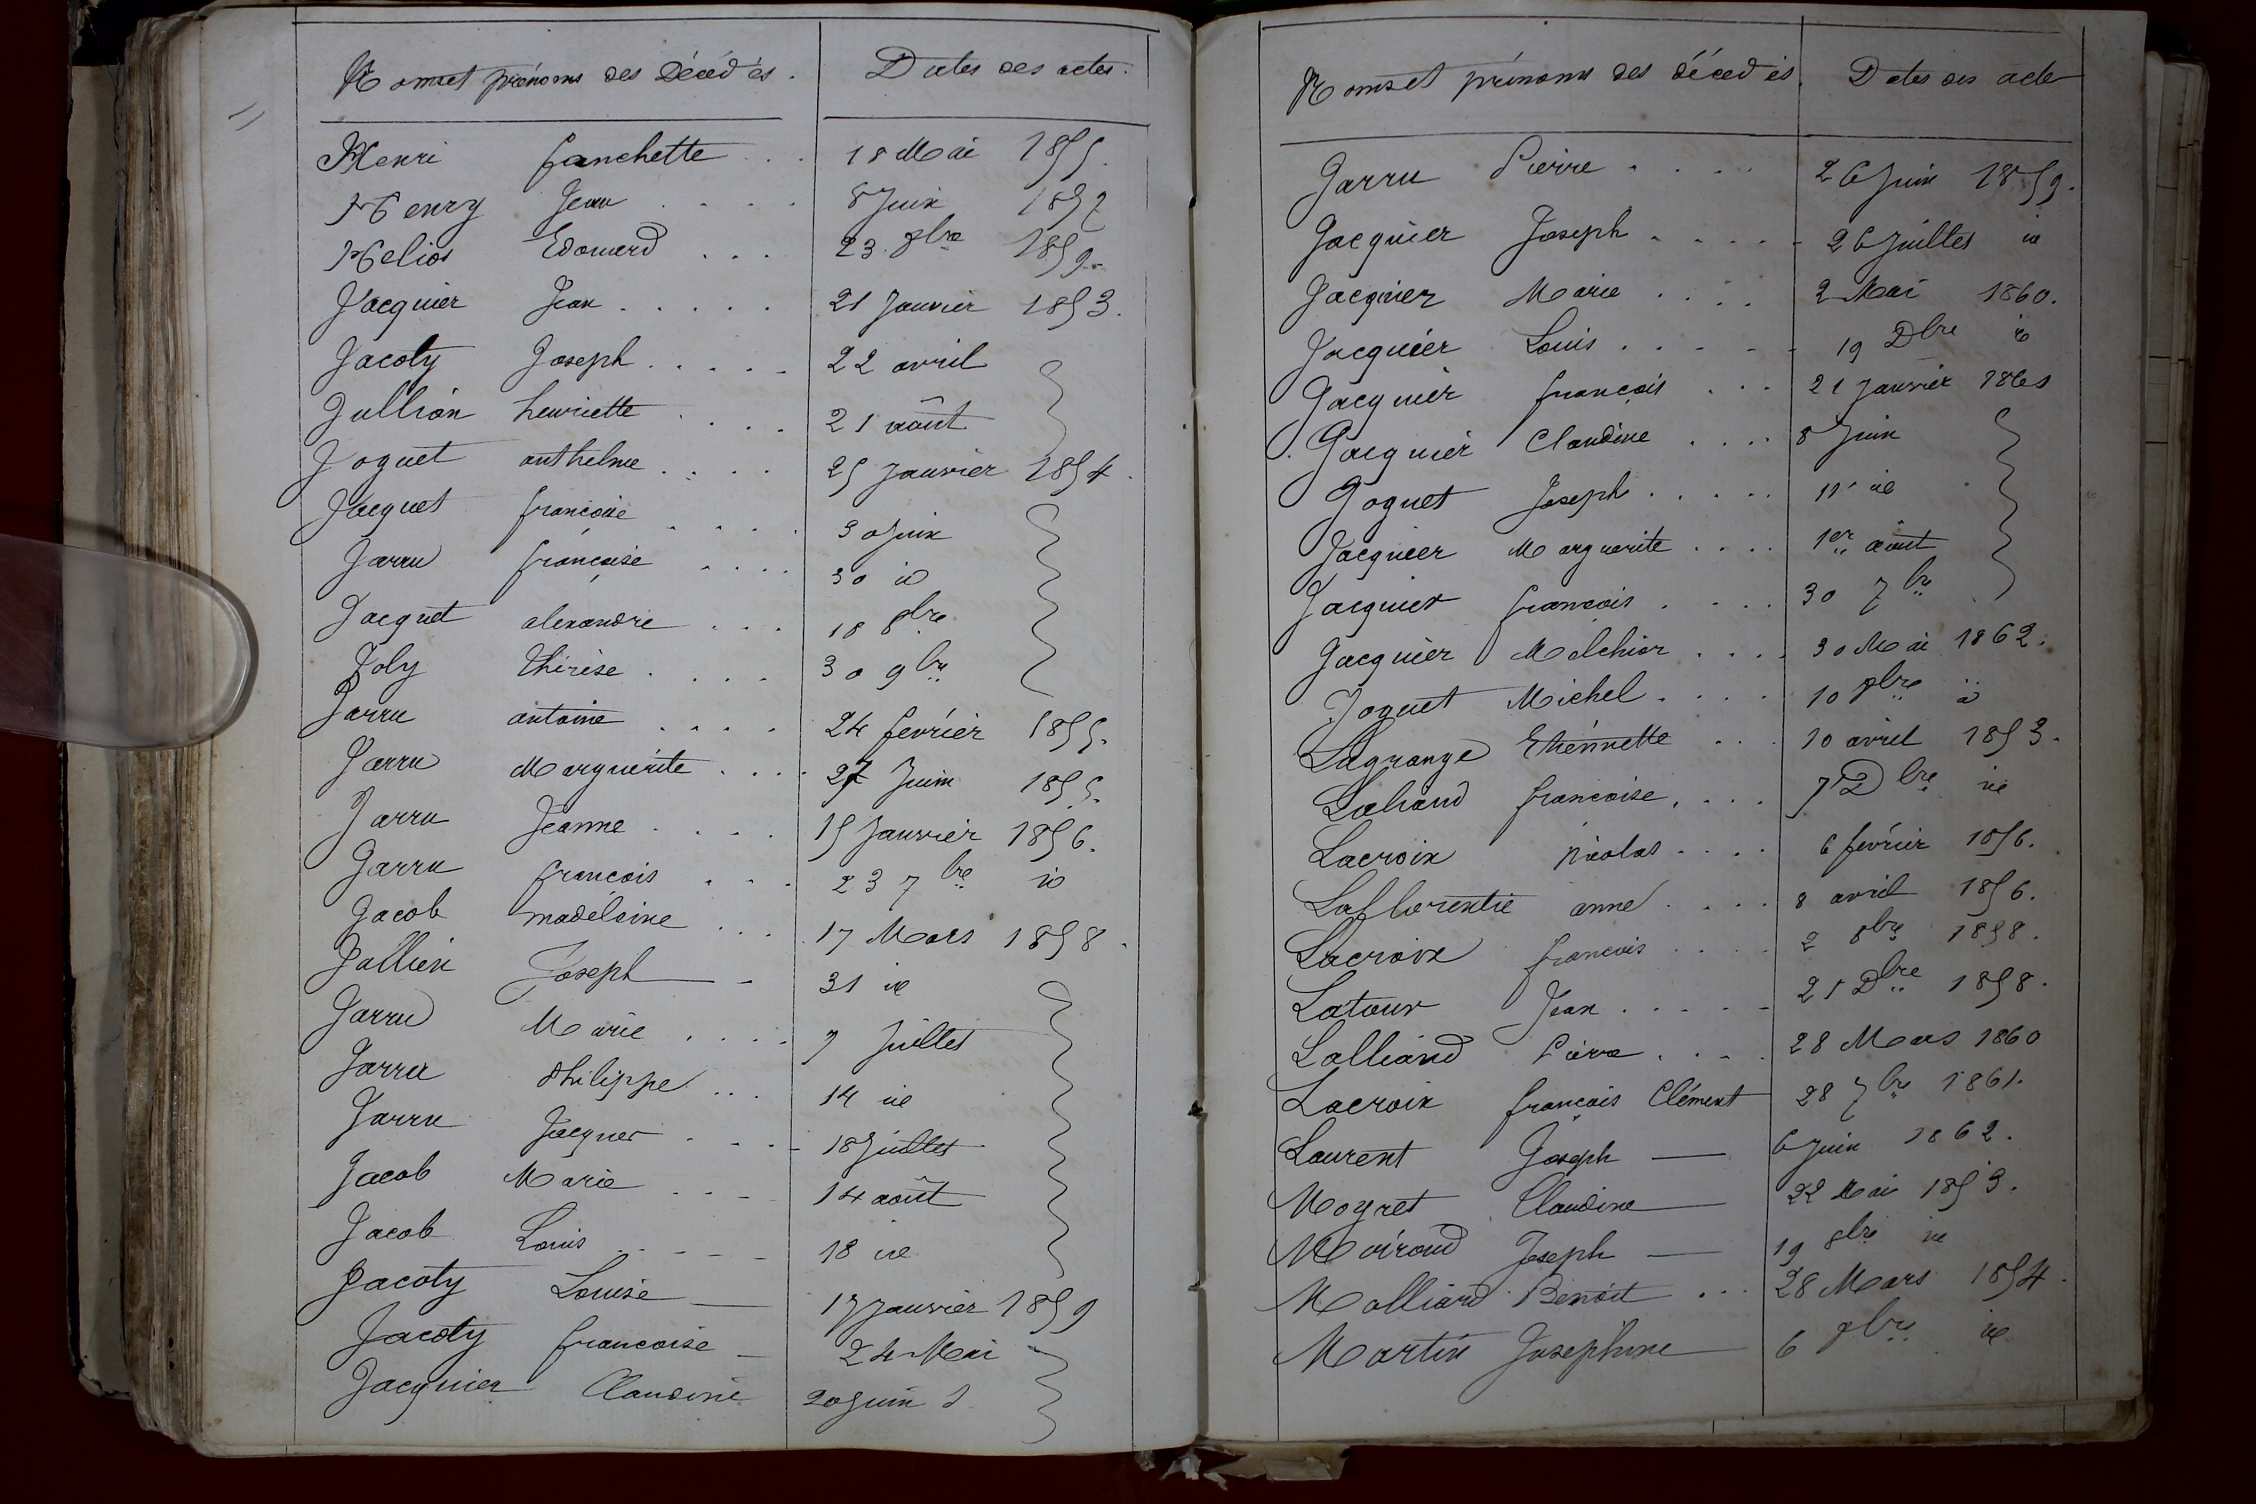 Noms et prénoms des Décédés. Dates des actes.
Henri franchette . . . 18 Mai 1855.
Henry Jean . . . . 8 Juin 1857
Helios Edouard . . . 23 8bre 1859.
Jacquier Jean . . . . . 21 Janvier 1853.
Jacoty Joseph . . . . . 22 avril
Jullion henriette . . . . 21 août
Joguet anthelme . . . . 25 Janvier 1854.
Jacquet françoise . . . . 30 Juin
Jarru françoise . . . . 30 id
Jacquet alexandre . . . 18 8bre
Joly thérèse . . . . 30 9bre
Jarru antoine . . . . 24 février 1855.
Jarru Marguerite . . . . 27 Juin 1855.
Jarru Jeanne . . . . 15 Janvier 1856.
Jarru françois . . . 23 7bre id
Jacob madeleine . . . 17 Mars 1858.
Jallien Joseph — - 31 id
Jarru Marie . . . . 7 Juillet
Jarru Philippe . . . 14 id
Jarru Jacques . . . . 18 Juillet
Jacob Marie . . . 14 août
Jacob Louis . . . . 18 id
Jacoty Louise — 17 Janvier 1859
Jacoty françoise — 24 Mai
Jacquier Claudine 20 Juin
Noms et prénoms des décédés. Dates des acte
Jarru Pierre . . . . 26 Juin 1859.
Jacquier Joseph . . . . . 26 Juillet id
Jacquier Marie . . . . 2 Mai 1860.
Jacquier Louis . . . . . 19 Dbre id
Jacquier françois . . . 21 Janvier 1861
Jacquier Claudine . . . . 8 Juin
Joguet Joseph . . . . . 11 id
Jacquier Marguerite . . . . 1er août
Jacquier françois . . . . 30 7bre
Jacquier Melchior . . . . 30 Mai 1862.
Joguet Michel . . . . 10 8bre id
Lagrange Etiennette . . . 10 avril 1853.
Laliaud françoise . . . . 7 Dbre id
Lacroix nicolas . . . . 6 février 1856.
Laflorentie anne . . . . 8 avril 1856.
Lacroix françois . . . . 2 8bre 1858.
Latour Jean . . . . . 21 Dbre 1858.
Lalliand Pierre . . . . 28 Mars 1860
Lacroix françois Clément 28 7bre 1861.
Laurent Joseph — 6 Juin 1862.
Moyret Claudine — 22 Mai 1853.
Moiroud Joseph — 19 8bre id
Molliard Benoit . . . 28 Mars 1854.
Martin Josephine — 6 8bre id